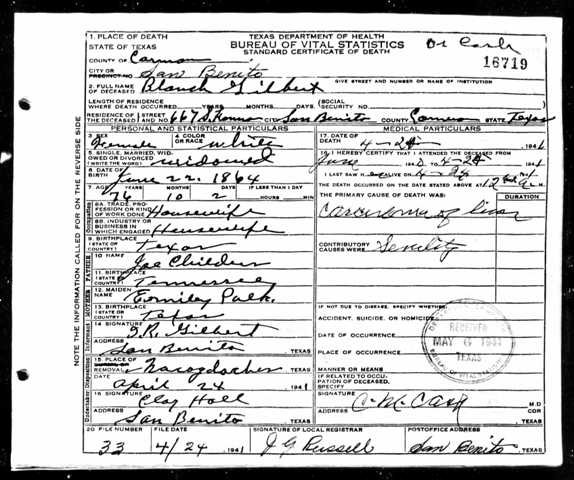 1. PLACE OF DEATH
STATE OF TEXAS
TEXAS DEPARTMENT OF HEALTH
BUREAU OF VITAL STATISTICS
STANDARD CERTIFICATE OF DEATH
16719
COUNTY OF
CITY OR
PRECINCT NO. San Benito
GIVE STREET AND NUMBER OR NAME OF INSTITUTION
2. FULL NAME
OF DECEASED Blanch Gilbert
LENGTH OF RESIDENCE
WHERE DEATH OCCURRED YEARS MONTHS DAYS (SOCIAL
SECURITY NO.
RESIDENCE OF STREET
THE DECEASED AND NO. 667 S. CITY San Benito COUNTY STATE Texas
PERSONAL AND STATISTICAL PARTICULARS
3. SEX Female 4. COLOR
OR RACE white
5. SINGLE, MARRIED, WID-
OWED OR DIVORCED
(WRITE THE WORD) widowed
6. DATE OF
BIRTH June 22. 1864
7. AGE YEARS MONTHS DAYS IF LESS THAN 1 DAY
76 10 2 HOURS MIN
8A. TRADE, PROFES-
SION OR KIND
OF WORK DONE Housewife
8B. INDUSTRY OR
BUSINESS IN
WHICH ENGAGED Housewife
9. BIRTHPLACE
(STATE OR
COUNTRY) Texas
FATHER
10 NAME Joe Childers
11. BIRTHPLACE
(STATE OR
COUNTRY) Tennessee
MOTHER
12. MAIDEN
NAME Emily Polk.
13. BIRTHPLACE
(STATE OR
COUNTRY) Texas
Informant
14 SIGNATURE
J.R. Gilbert
ADDRESS San Benito, TEXAS
15. PLACE OF
REMOVAL Nacogdoches TEXAS
DATE April 24 1941
16. SIGNATURE Clay Holl
ADDRESS San Benito TEXAS
20 FILE NUMBER FILE DATE
33 4/24 1941
MEDICAL PARTICULARS
17. DATE OF
DEATH 4-24 1941
18. I HEREBY CERTIFY THAT I ATTENDED THE DECEASED FROM
June TO 4-24 1941
I LAST SAW H ALIVE ON 4-24 1941
THE DEATH OCCURRED ON THE DATE STATED ABOVE AT M.
THE PRIMARY CAUSE OF DEATH WAS: DURATION
Carcinoma of liver
CONTRIBUTORY
CAUSES WERE: Senility
IF NOT DUE TO DISEASE, SPECIFY WHETHER:
ACCIDENT, SUICIDE, OR HOMICIDE
DATE OF OCCURRENCE
PLACE OF OCCURRENCE
MANNER OR MEANS
IF RELATED TO OCCU-
PATION OF DECEASED,
SPECIFY
RECEIVED
MAY 6 1941
TEXAS
BUREAU OF VITAL STATISTICS
SIGNATURE M.D
ADDRESS COR
TEXAS
SIGNATURE OF LOCAL REGISTRAR
J G Russell
POSTOFFICE ADDRESS
San Benito TEXAS
NOTE THE INFORMATION CALLED FOR ON THE REVERSE SIDE